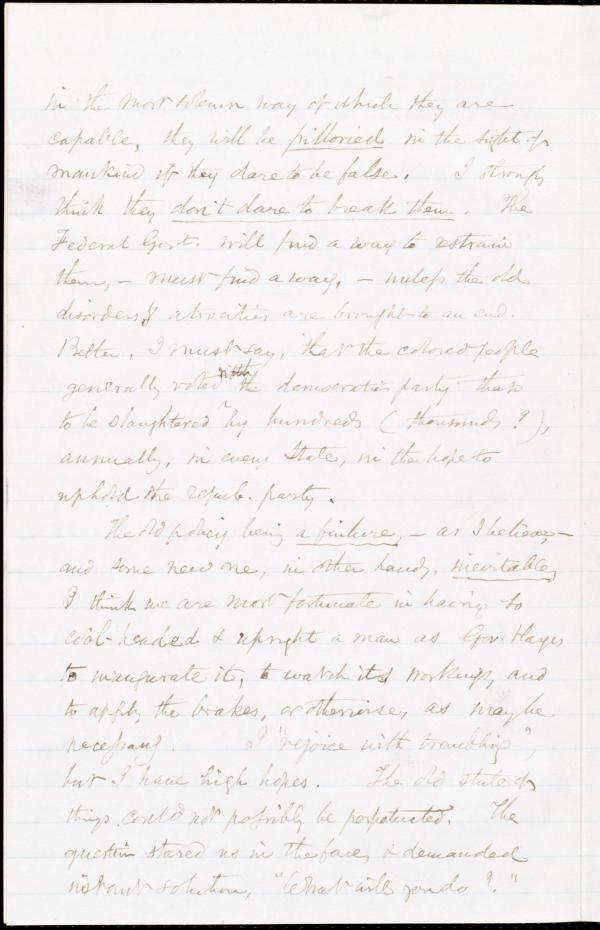 in the most solemn way of which they are
capable, they will be pilloried in the sight of
mankind if they dare to be false. I strongly
think they don't dare to break them. The
Federal Govt. will find a way to restrain
them, – must find a way, – unless the old
disorders & atrocities are brought to an end.
Better, I must say, that the colored people
generally voted with the democratic party than
to be slaughtered by hundreds (thousands?),
annually, in every State, in the hope to
uphold the repub. party.
The old policy being a failure, – as I believe, –
and some new one, in other hands, inevitable,
I think we are most fortunate in having so
cool-headed & upright a man as Gov. Hayes
to inaugurate it, to watch its workings, and
to apply the brakes, or otherwise, as may be
necessary. I "rejoice with trembling",
but I have high hopes. The old state of
things could not possibly be perpetuated. The
question stared us in the face, & demanded
instant solution, "What will you do?."